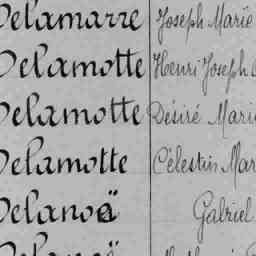 Delamarre Joseph Marie
Delamotte Henri Joseph
Delamotte Désiré Marie
Delamotte Célestin Mar
Delanoë Gabriel